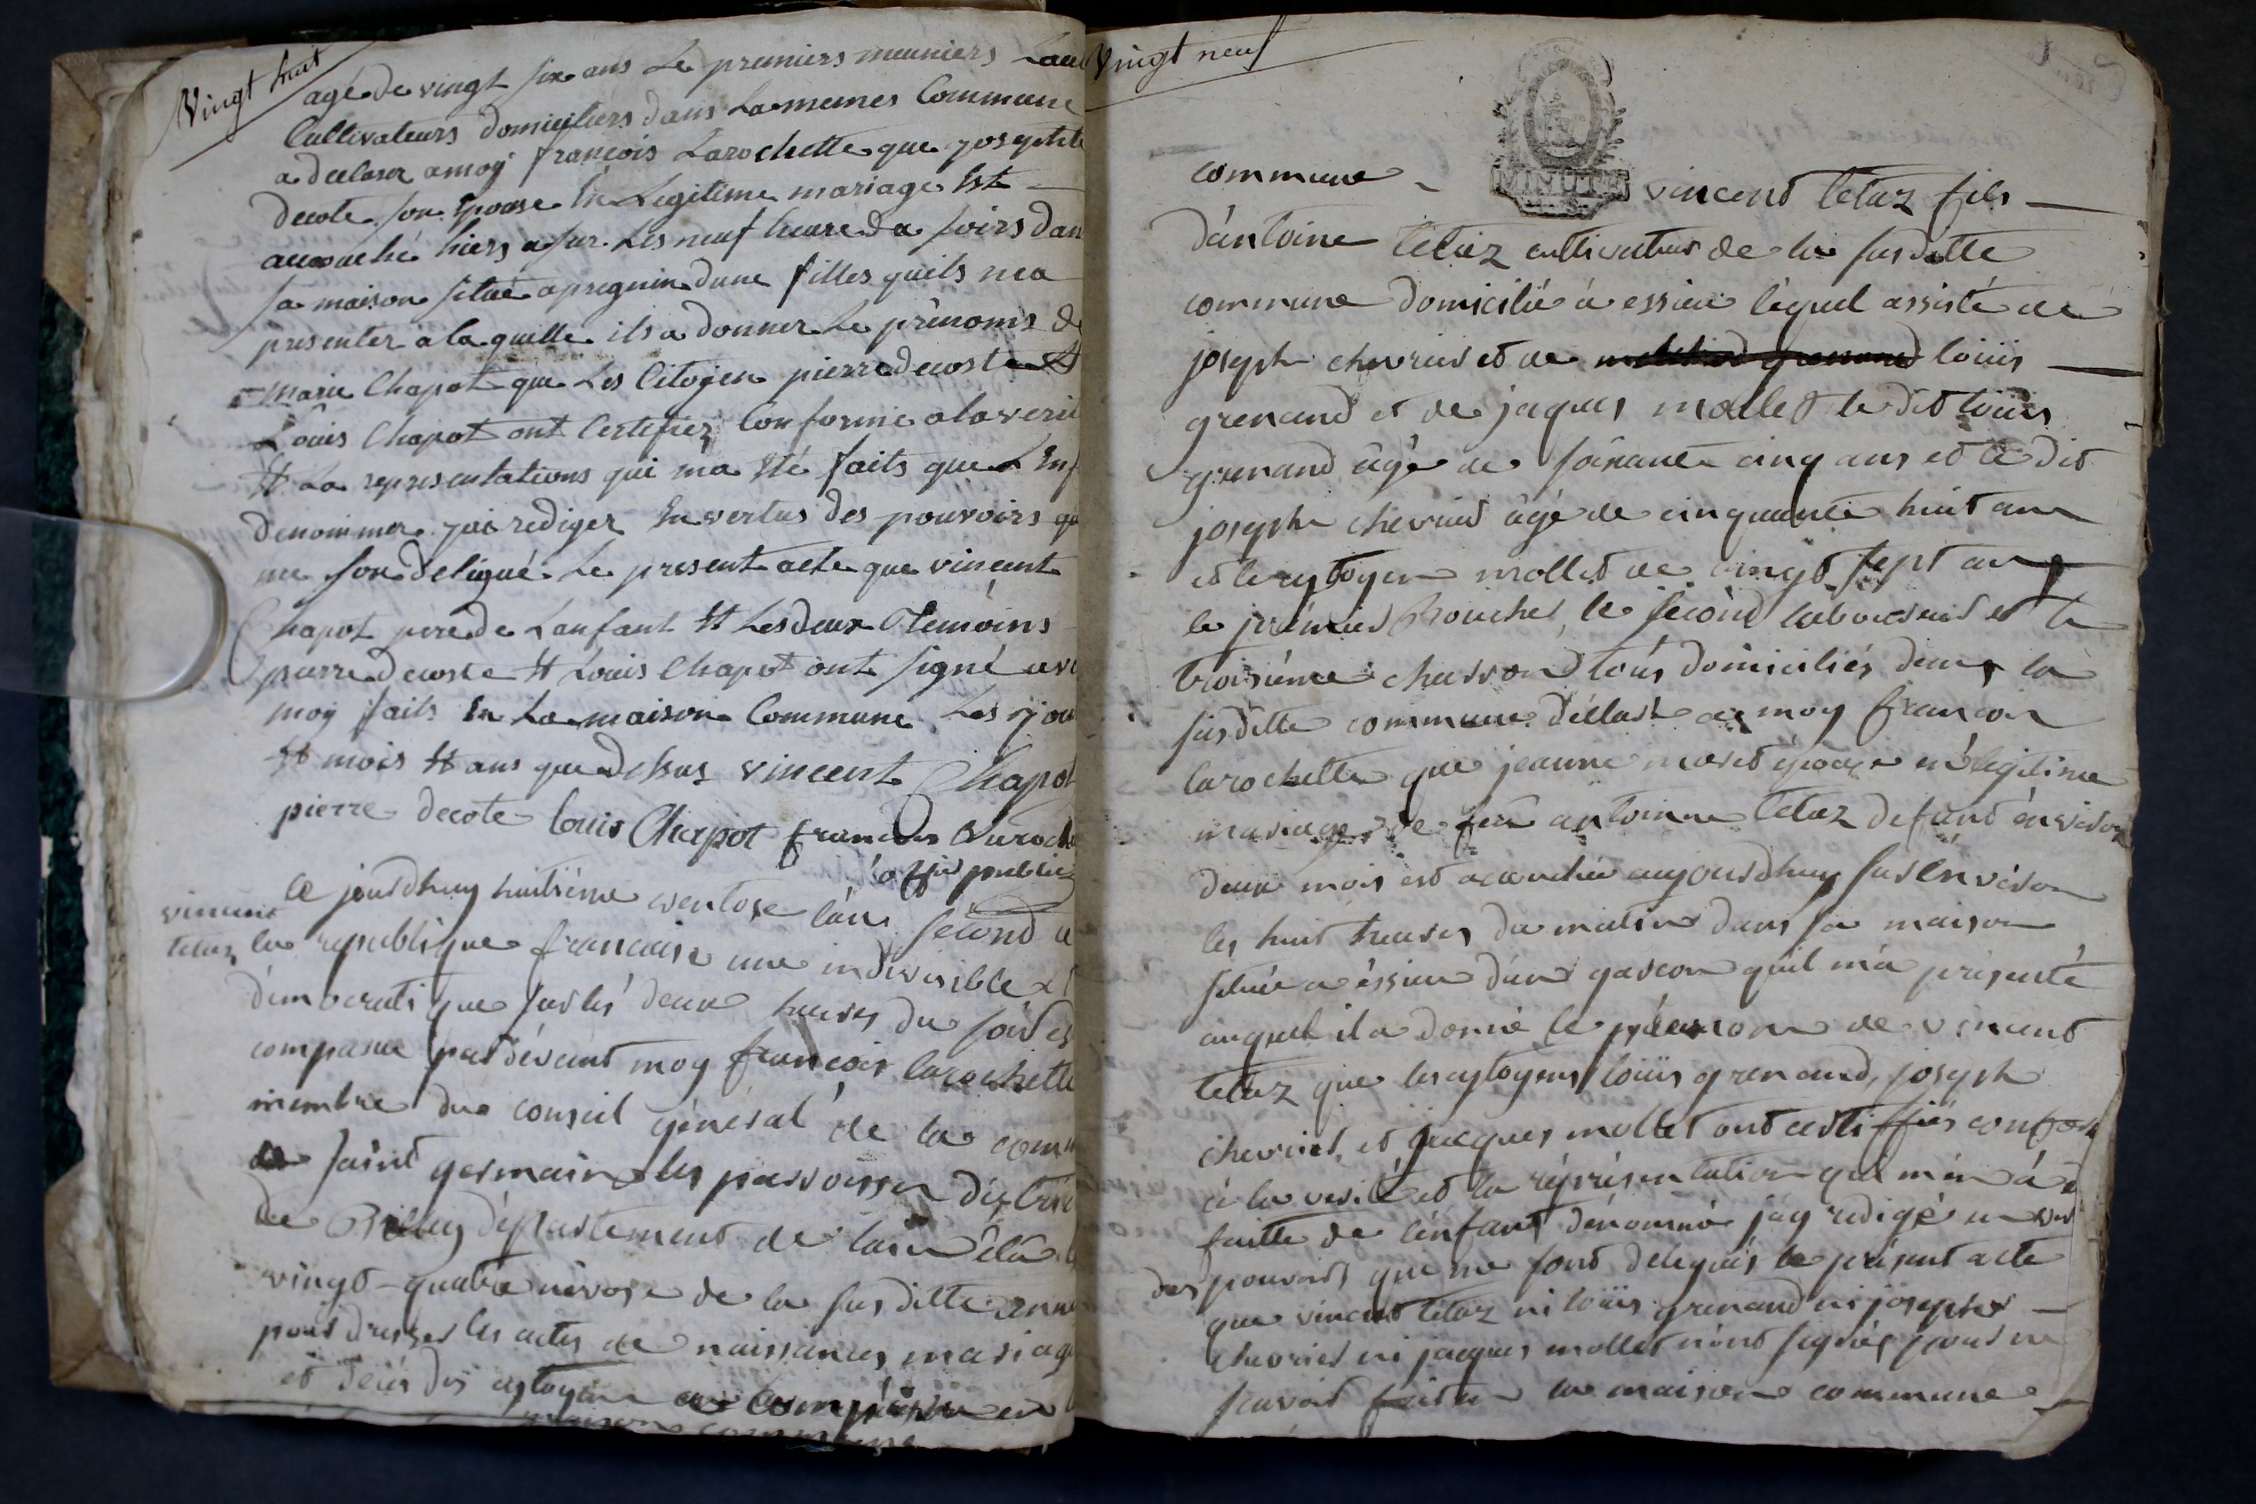 Vingt huit
agé de vingt six ans Le premiers meuniers Lau
Cultivateurs domiciliers dans La memes Commune
a declarer a moy françois Larochette que josephte
decote son Epouse En Legitime mariage Est
accouché hiers a sur Les neuf heure da soirs dan
sa maison situé a pregnin dune filles quils ma
presenter a la quelle ils a donner Le prénoms de
marie Chapot que Les Citoyen pierre decoste Et
Louis Chapot ont Certifiez Conforme a la verit
Et La representations qui ma Eté faits que L Enf
denommer jai rediger En vertus des pouvoirs qu
me son deligué Le present acte que vincent
Chapot père de Lanfant Et Les deux Temoins
pierre decoste Et Louis Chapot ont signé ave
moy faits En La maison Commune Les jou
Et mois Et ans que desus vincent Chapot
pierre decote louis Chapot françois Laroche
officier public
ce jourdhuy huitiéme ventose l'an second de
vincent
tetaz
la republique francaise une indivisible et
démocratique sur les deux heures du soir es
comparu pardévant moy françois larochette
membre du conseil général de la comm
de saint germain les parroisses distric
de Belley département de lain élu le
vingt-quatre nivose de la susditte anné
pour dresser les actes de naissances mariage
et décés des cytoyens a comparu en
maison commune
Vingt neuf
MINUTE
commune vincent tetaz fils
d'antoine tetaz cultivateur de la susditte
commune domicilié à essieu léquel assisté de
joseph chevrier et de louis
grenand et de jaques mollet le dit louis
grenand âgé de soixante cinq ans et le dit
joseph chevrier âgé de cinquante huit ans
et le cytoyen mollet de vingt sept ans
le prémier le second laboureur et le
troisiéme charron tous domiciliés dans la
susditte commune déclaré a moy françois
larochette que jeanne moret épouse en légitime
mariage de feu antoinne tetaz defunt énviron
deux mois est acouchée aujourdhuy sur environ
les huit heures du matin dans sa maison
située a éssieu d'un garcon quil m'a présenté
auquel il a donné le prénom de vincent
tetaz que les cytoyens loüis grenand, joseph
chevrier, et jacques mollet ont certiffiés conforme
à la verité et la réprésentation qui m'en à été
faitte de l'enfant dénommé j'ay redigé en vertu
des pouvoirs que me sont delegués le présent acte
que vincent tetaz ni loüis grenand ni joseph
chevrier ni jacques mollet n'ont signés pour ne
scavoir fait en la maison commune